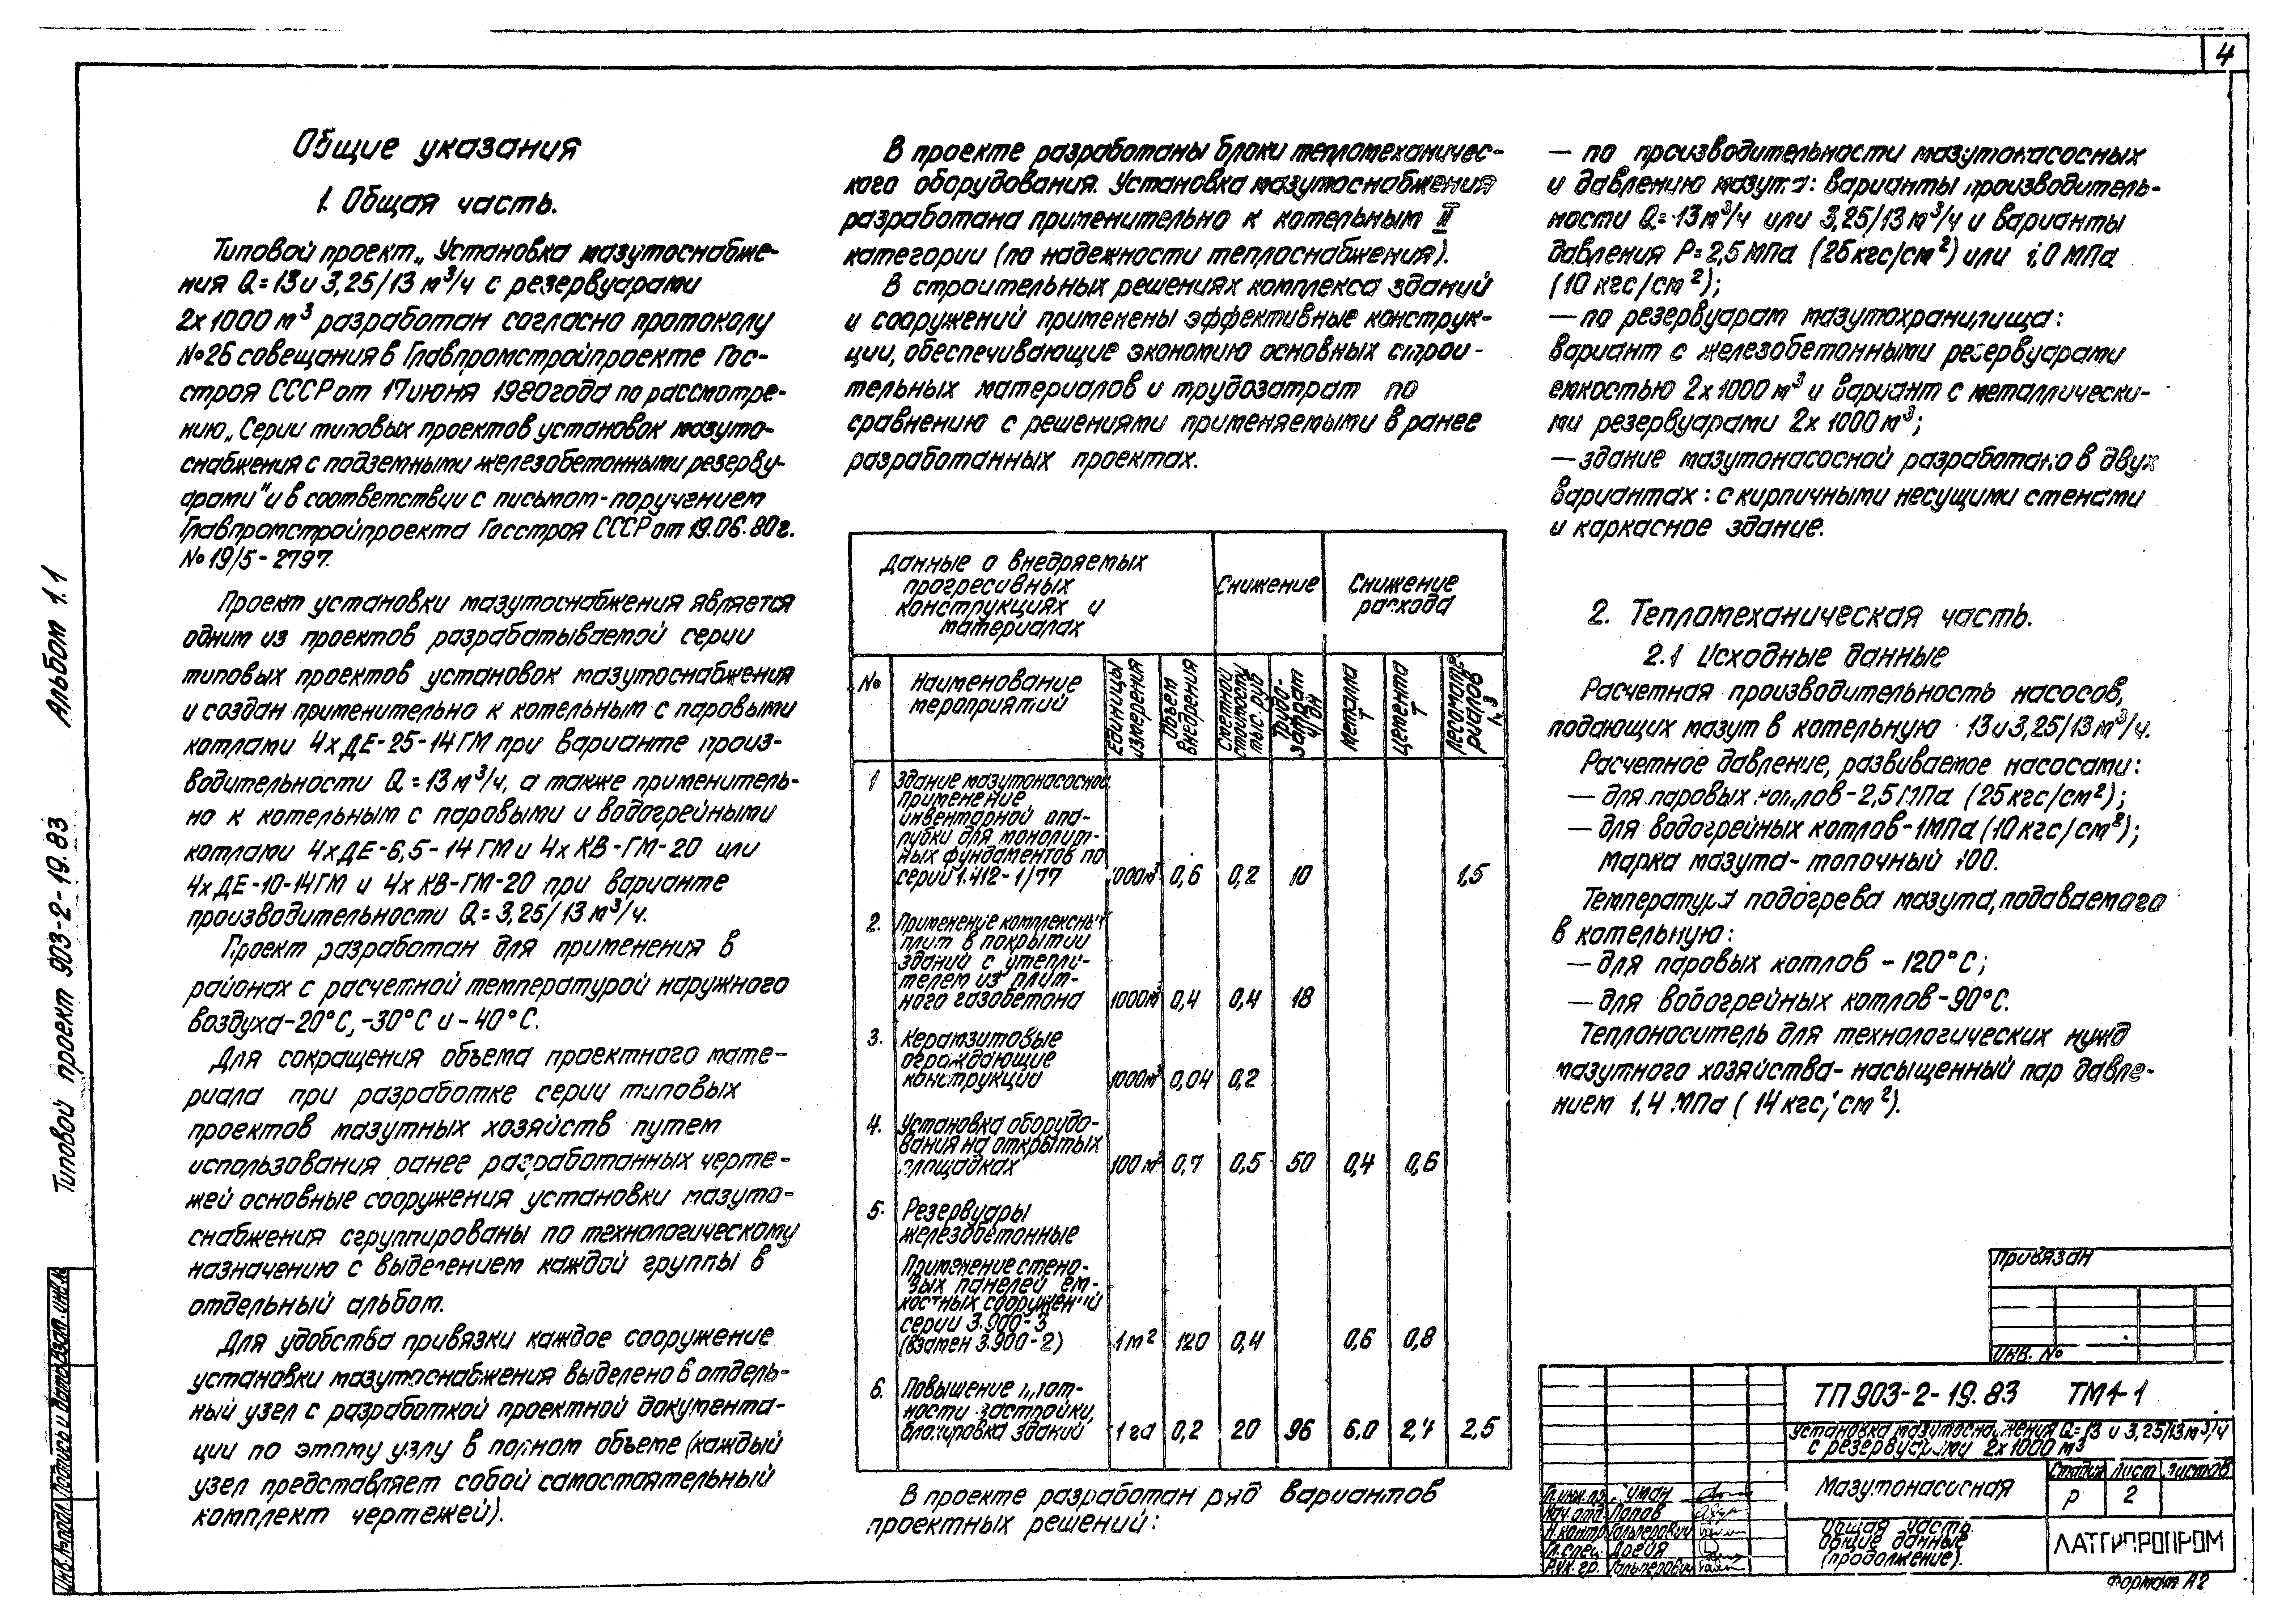 4
Общие указания
1. Общая часть.
Типовой проект „Установка мазутоснабже-
ния Q=13 и 3,25/13 м³/ч с резервуарами
2х1000 м³ разработан согласно протоколу
№26 совещания в Главпромстройпроекте Гос-
строя СССР от 17 июня 1980 года по рассмотре-
нию „Серии типовых проектов установок мазуто-
снабжения с подземными железобетонными резерву-
арами" и в соответствии с письмом-поручением
Главпромстройпроекта Госстроя СССР от 19.06.80г.
№19/5-2797.
Проект установки мазутоснабжения является
одним из проектов разрабатываемой серии
типовых проектов установок мазутоснабжения
и создан применительно к котельным с паровыми
котлами 4хДЕ-25-14ГМ при варианте произ-
водительности Q=13 м³/ч, а также применитель-
но к котельным с паровыми и водогрейными
котлами 4хДЕ-6,5-14ГМ и 4х КВ-ГМ-20 или
4хДЕ-10-14ГМ и 4х КВ-ГМ-20 при варианте
производительности Q=3,25/13 м³/ч.
Проект разработан для применения в
районах с расчетной температурой наружного
воздуха -20°С, -30°С и -40°С.
Для сокращения объема проектного мате-
риала при разработке серии типовых
проектов мазутных хозяйств путем
использования ранее разработанных черте-
жей основные сооружения установки мазуто-
снабжения сгруппированы по технологическому
назначению с выделением каждой группы в
отдельный альбом.
Для удобства привязки каждое сооружение
установки мазутоснабжения выделено в отдель-
ный узел с разработкой проектной документа-
ции по этому узлу в полном объеме (каждый
узел представляет собой самостоятельный
комплект чертежей).
В проекте разработаны блоки тепломеханичес-
кого оборудования. Установка мазутоснабжения
разработана применительно к котельным II
категории (по надежности теплоснабжения).
В строительных решениях комплекса зданий
и сооружений применены эффективные конструк-
ции, обеспечивающие экономию основных строи-
тельных материалов и трудозатрат по
сравнению с решениями применяемыми в ранее
разработанных проектах.
Данные о внедряемых
прогресивных
конструкциях и
материалах
Снижение
Снижение
расхода
№
Наименование
мероприятий
Единицы
измерения
Объем
внедрения
Сметной
стоимости
тыс.руб
Трудо-
затрат
ч/дн
Металла
Т
Цемента
Т
Лесомате-
риалов
м³
1 Здание мазутонасосной.
Применение
инвентарной опа-
лубки для монолит-
ных фундаментов по
серии 1.412-1/77 1000м³ 0,6 0,2 10 1,5
2. Применение комплексных
плит в покрытии
зданий с утепли-
телем из плит-
ного газобетона 1000м³ 0,4 0,4 18
3. Керамзитовые
ограждающие
конструкции 1000м³ 0,04 0,2
4. Установка оборудо-
вания на открытых
площадках 100м² 0,7 0,5 50 0,4 0,6
5. Резервуары
железобетонные
Применение стено-
вых панелей ем-
костных сооружений
серии 3.900-3
(взамен 3.900-2) 1м² 120 0,4 0,6 0,8
6. Повышение плот-
ности застройки,
блокировка зданий 1га 0,2 20 96 6.0 2,4 2,5
В проекте разработан ряд вариантов
проектных решений:
— по производительности мазутонасосных
и давлению мазута: варианты производитель-
ности Q=13м³/ч или 3,25/13м³/ч и варианты
давления Р=2,5МПа (25кгс/см²) или 1,0 МПа
(10кгс/см²);
— по резервуарам мазутохранилища:
вариант с железобетонными резервуарами
емкостью 2х1000м³ и вариант с металлически-
ми резервуарами 2х1000м³;
— здание мазутонасосной разработано в двух
вариантах: с кирпичными несущими стенами
и каркасное здание.
2. Тепломеханическая часть.
2.1 Исходные данные
Расчетная производительность насосов,
подающих мазут в котельную - 13 и 3,25/13м³/ч.
Расчетное давление, развиваемое насосами:
— для паровых котлов - 2,5МПа (25кгс/см²);
— для водогрейных котлов - 1МПа (10кгс/см²);
Марка мазута - топочный 100.
Температура подогрева мазута, подаваемого
в котельную:
— для паровых котлов - 120°С;
— для водогрейных котлов - 90°С.
Теплоноситель для технологических нужд
мазутного хозяйства - насыщенный пар давле-
нием 1,4 МПа (14кгс/см²).
Типовой проект 903-2-19.83 Альбом 1.1
Инв.№подл. Подпись и дата Взам.инв.№
Привязан
Инв. №
ТП 903-2-19.83 ТМ1-1
Установка мазутоснабжения Q=13 и 3,25/13м³/ч
с резервуарами 2х1000 м³
Мазутонасосная
Стадия Лист Листов
Р 2
Общая часть.
Общие данные
(продолжение).
ЛАТГИПРОПРОМ
Гл.инж.пр.
Нач.отд. Попов
Н.контр. Гальперович
Гл.спец. Дрейя
Рук.гр. Гальперович
Формат А2